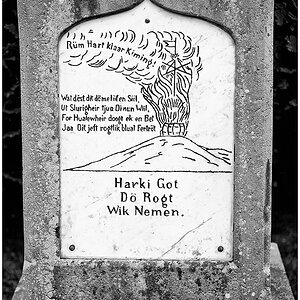 Rüm Hart klaar Kiming!
Wat dest dit dömelifen Stil,
Ut Slurigheir tjuu Dinen Wil,
For Hualewheir doogt ek en Bet
Jaa Dit jeft rogtlik bluat Fertriit
Harki Got
Dö Rogt
Wik Nemen.